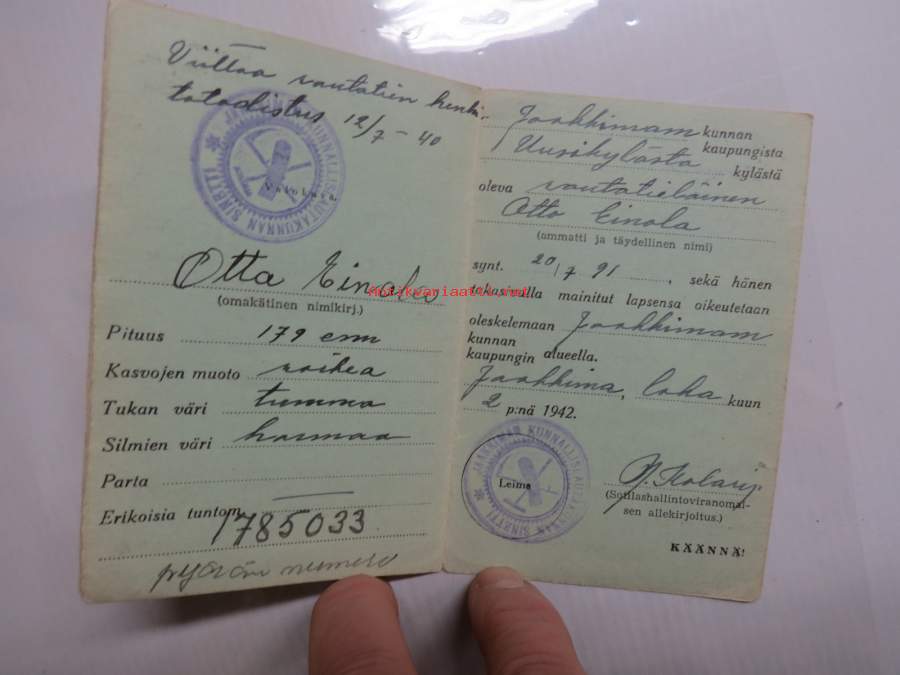 Viittaa rautatien henki-
lötodistus 12/7 – 40
Valokuva.
JAAKKIMAN KUNNALLISLAUTAKUNNAN SINETTI
Otto Einola
(omakätinen nimikirj.)
Pituus 179 cm
Kasvojen muoto soikea
Tukan väri tumma
Silmien väri harmaa
Parta
Erikoisia tuntom.
1785033
pyörän numero
Jaakkiman kunnan
kaupungista
Uusikylästä kylästä
oleva rautatieläinen
Otto Einola
(ammatti ja täydellinen nimi)
synt. 20/7 91, sekä hänen
takasivulla mainitut lapsensa oikeutetaan
oleskelemaan Jaakkiman
kunnan
kaupungin alueella.
Jaakkima, loka kuun
2 p:nä 1942.
JAAKKIMAN KUNNALLISLAUTAKUNNAN SINETTI
Leima
(Sotilashallintoviranomai-
sen allekirjoitus.)
KÄÄNNÄ!
antikvariaatti.net